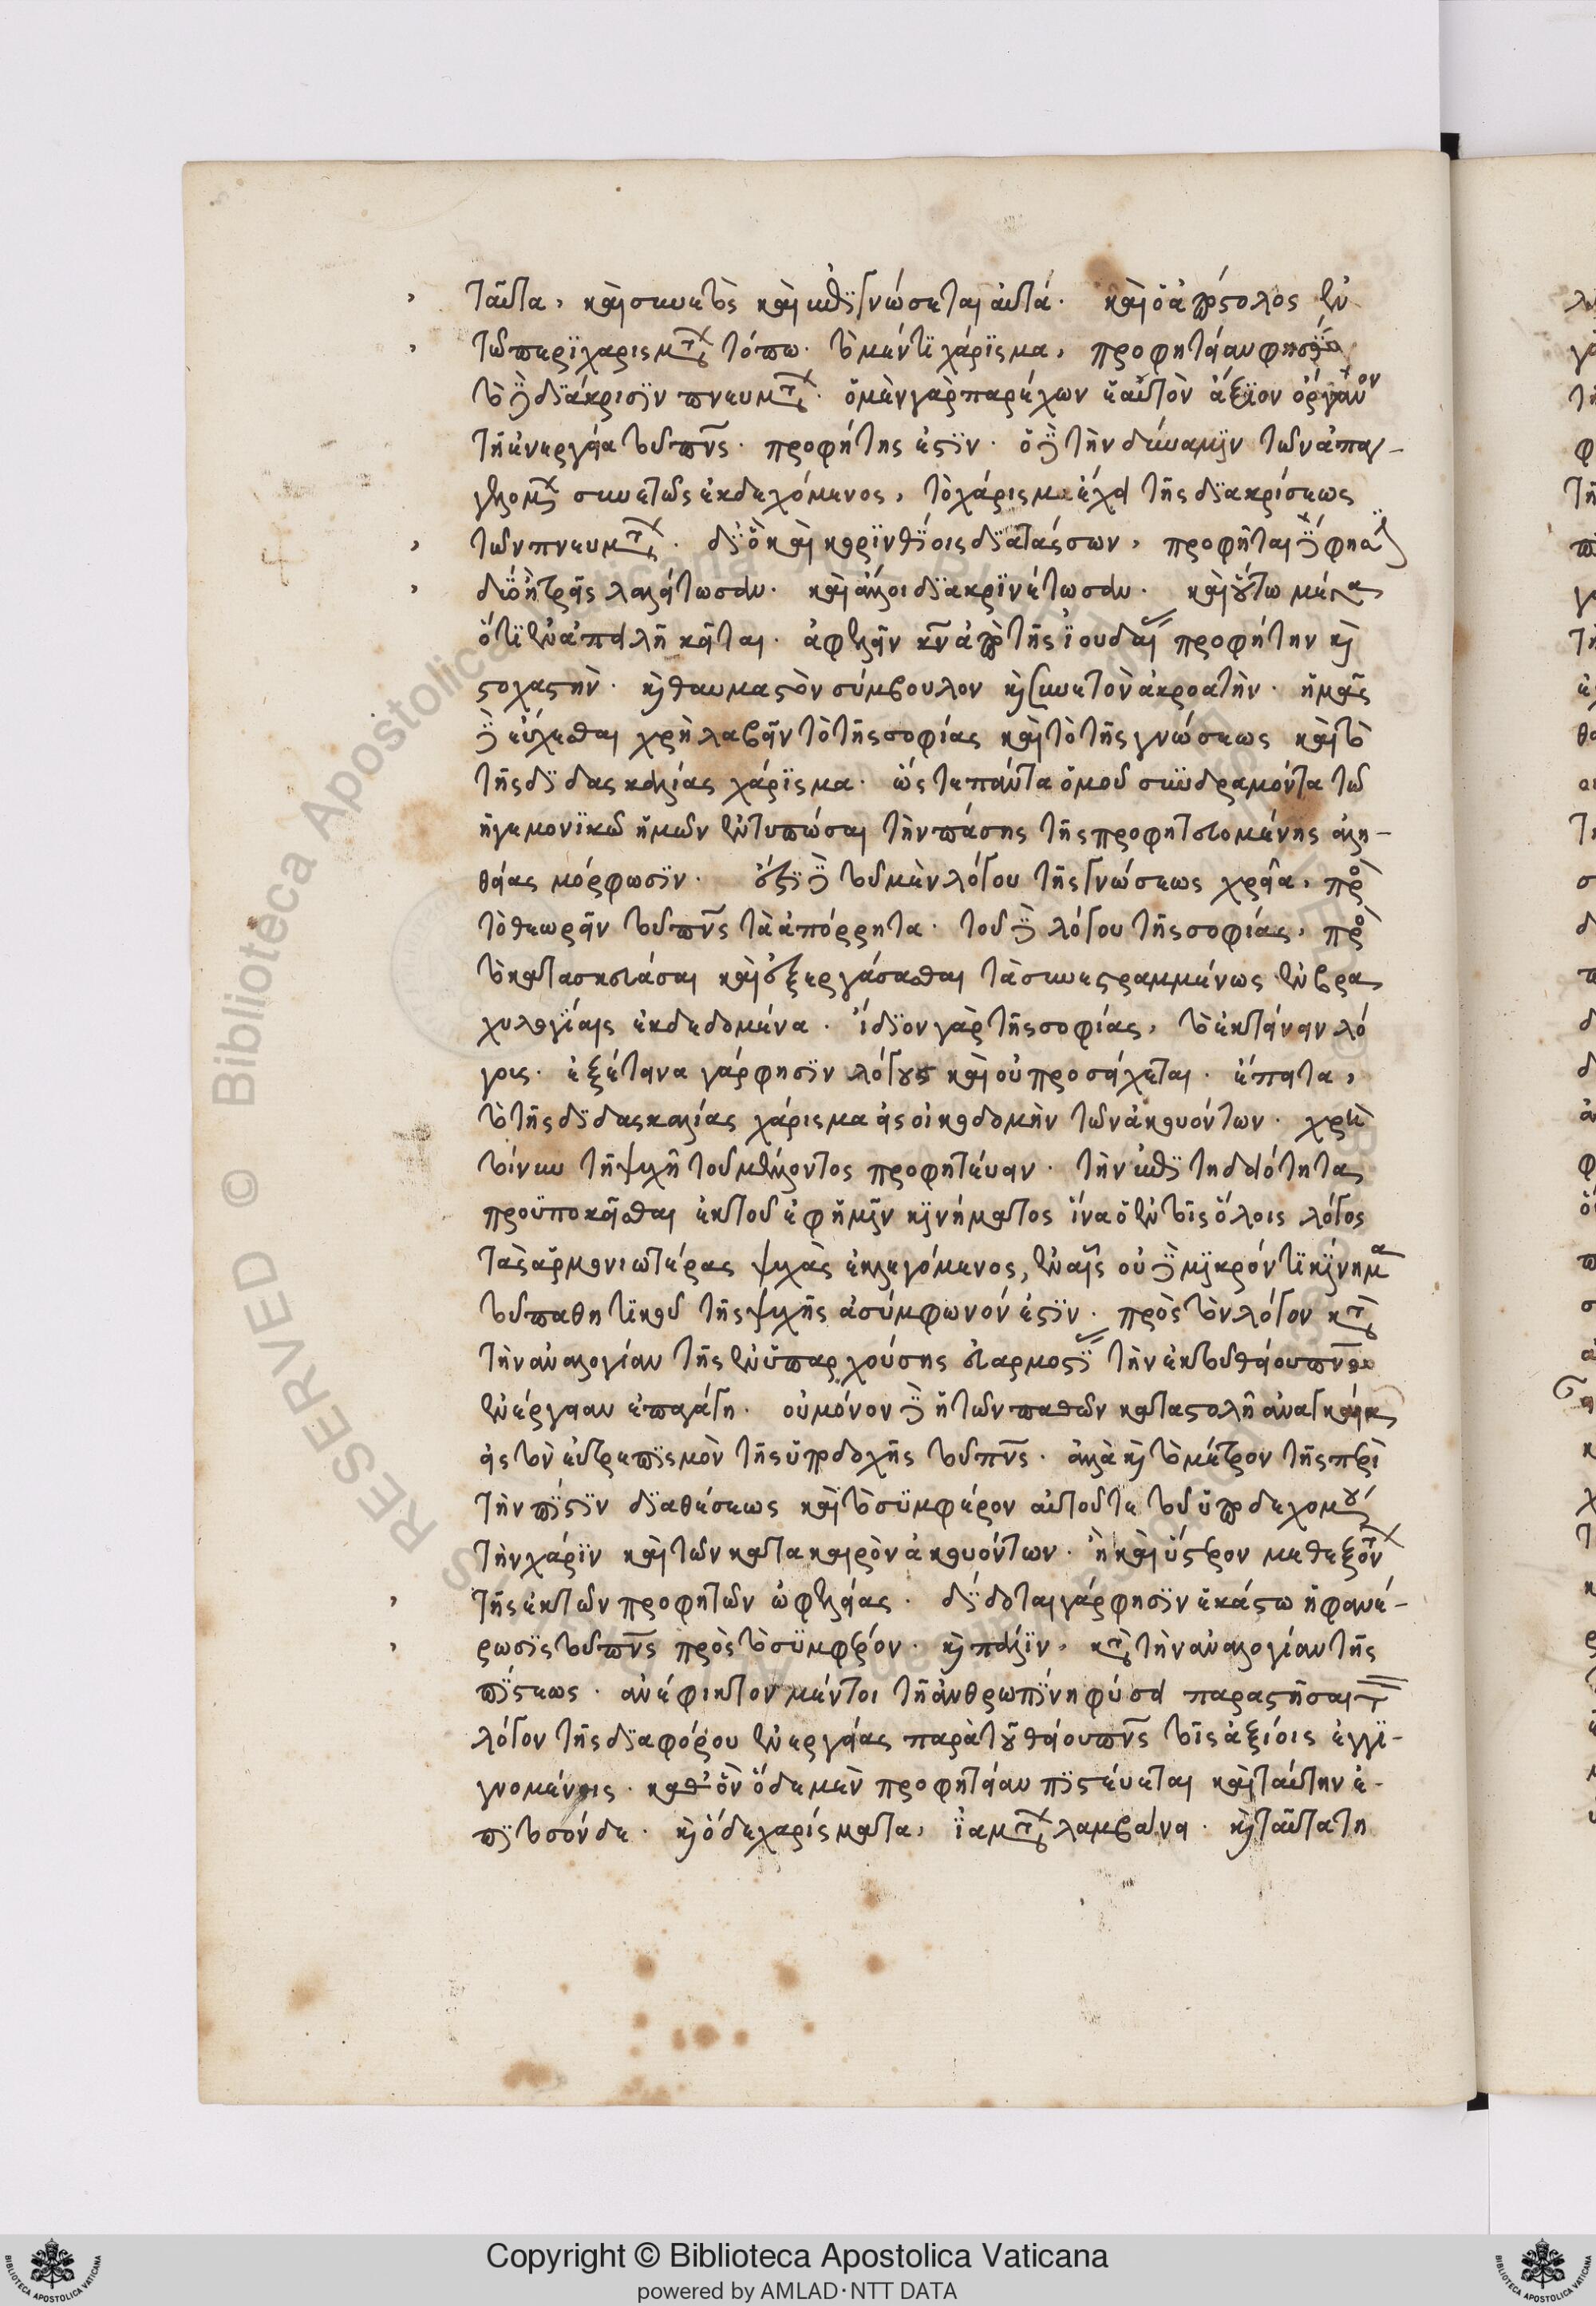 ταῦτα, καὶ συνετὸς καὶ ἐπιγνώσεται αὐτά. καὶ ὁ ἀπόστολος ἐν
τῷ περὶ χαρισμάτων τόπῳ. τὸ μέν τι χάρισμα, προφητείαν φησὶ
τὸ δὲ διάκρισιν πνευμάτων. ὁ μὲν γὰρ παρέχων ἑαυτὸν ἄξιον ὄργανον
τῇ ἐνεργείᾳ τοῦ πνς. προφήτης ἐστὶν. ὁ δὲ τὴν δύναμιν τῶν ἀπαγ-
γελλομένων συνετῶς ἐκδεχόμενος, τὸ χάρισμα ἔχει τῆς διακρίσεως
τῶν πνευμάτων. διὸ καὶ κορινθίοις διατάσσων, προφῆται δὲ φησὶ
δύο ἢ τρεῖς λαλείτωσαν. καὶ ἄλλοι διακρινέτωσαν. καὶ οὕτω μέγα
ὅτι ἐν ἀπειλῇ κεῖται. ἀφελεῖν κν ἀπὸ τῆς ἰουδαίας προφήτην καὶ
στοχαστὴν. καὶ θαυμαστὸν σύμβουλον καὶ συνετὸν ἀκροατὴν. ἡμᾶς
δὲ εὔχεσθαι χρὴ λαβεῖν τὸ τῆς σοφίας καὶ τὸ τῆς γνώσεως καὶ τὸ
τῆς διδασκαλίας χάρισμα. ὥστε πάντα ὁμοῦ συνδραμόντα τῷ
ἡγεμονικῷ ἡμῶν ἐντυπῶσαι τὴν πάσης τῆς προφητευομένης ἀλη-
θείας μόρφωσιν. ἔστι δὲ τοῦ μὲν λόγου τῆς γνώσεως χρεία, πρὸς
τὸ θεωρεῖν τοῦ πνς τὰ ἀπόρρητα. τοῦ δὲ λόγου τῆς σοφίας, πρὸς
τὸ κατασκευάσαι καὶ ἐξεργάσασθαι τὰ συνεστραμμένως ἐν βρα
χυλογίαις ἐκδεδομένα. ἴδιον γὰρ τῆς σοφίας, τὸ ἐκτείνειν λό
γοις. ἐξέτεινα γάρ φησιν λόγους καὶ οὐ προσείχεται. ἔπειτα,
τὸ τῆς διδασκαλίας χάρισμα εἰς οἰκοδομὴν τῶν ἀκουόντων. χρὴ
τοίνυν τῇ ψυχῇ τοῦ μέλλοντος προφητεύειν. τὴν ἐπιτηδειότητα
προϋποκεῖσθαι ἐκ τοῦ ἐφ ἡμῖν κινήματος ἵνα ὁ ἐν τοῖς ὅλοις λόγος
τὰς ἁρμονιωτέρας ψυχὰς ἐκλεγόμενος, ἐν αἷς οὐδὲ μικρόν τι κίνημα
τοῦ παθητικοῦ τῆς ψυχῆς ἀσύμφωνόν ἐστιν. πρὸς τὸν λόγον κατὰ
τὴν ἀναλογίαν τῆς ἐνυπαρχούσης εὐαρμοστίας τὴν ἐκ τοῦ θείου πνς
ἐνέργειαν ἐπαγάγῃ. οὐ μόνον δὲ ἡ τῶν παθῶν καταστολὴ ἀναγκαία
εἰς τὸν εὐτρεπισμὸν τῆς ὑποδοχῆς τοῦ πνς. ἀλλὰ καὶ τὸ μέτρον τῆς περὶ
τὴν πίστιν διαθέσεως καὶ τὸ συμφέρον αὐτοῦ τε τοῦ ὑποδεχομένου
τὴν χάριν καὶ τῶν κατὰ καιρὸν ἀκουόντων. ἢ καὶ ὕστερον μεθεξόντων
τῆς ἐκ τῶν προφητῶν ὠφελείας. δίδοται γάρ φησιν ἑκάστῳ ἡ φανέ-
ρωσις τοῦ πνς πρὸς τὸ συμφέρον. καὶ πάλιν, κατὰ τὴν ἀναλογίαν τῆς
πίστεως. ἀνέφικτον μέντοι τῇ ἀνθρωπίνῃ φύσει παραστῆσαι τὸν
λόγον τῆς διαφόρου ἐνεργείας παρὰ τοῦ θείου πνς τοῖς ἀξίοις ἐγγι-
γνομένης. καθ ὃν ὅδε μὲν προφητείαν πιστεύεται καὶ ταύτην ἐ-
πὶ τοσόνδε. καὶ ὅδε χαρίσματα, ἰαμάτων λαμβάνει. καὶ ταῦτα τη
Copyright © Biblioteca Apostolica Vaticana
powered by AMLAD·NTT DATA